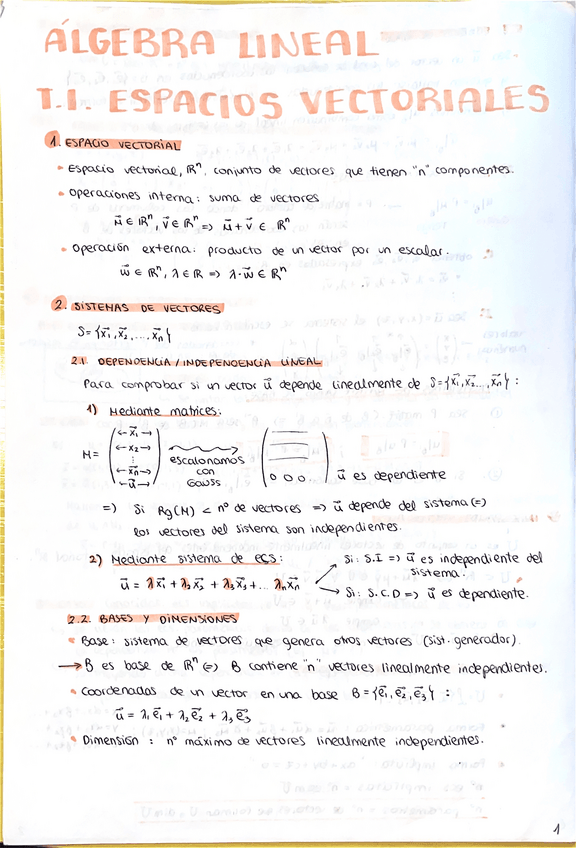 ÁLGEBRA LINEAL
T.1. ESPACIOS VECTORIALES
1. ESPACIO VECTORIAL
• Espacio vectorial, ℝⁿ, conjunto de vectores que tienen "n" componentes.
• Operaciones interna: suma de vectores
u⃗ ∈ ℝⁿ, v⃗ ∈ ℝⁿ => u⃗ + v⃗ ∈ ℝⁿ
• Operación externa: producto de un vector por un escalar.
w⃗ ∈ ℝⁿ, λ ∈ ℝ => λ·w⃗ ∈ ℝⁿ
2. SISTEMAS DE VECTORES
S = {x⃗₁, x⃗₂, ..., x⃗ₙ}
2.1. DEPENDENCIA / INDEPENDENCIA LINEAL
Para comprobar si un vector u⃗ depende linealmente de S = {x⃗₁, x⃗₂, ..., x⃗ₙ} :
1) Mediante matrices:
M = (← x⃗₁ → ← x₂ → ⋮ ← x⃗ₙ → ← u⃗ →) escalonamos con Gauss (0 0 0..) u⃗ es dependiente
=) Si Rg(M) < nº de vectores => u⃗ depende del sistema (=)
los vectores del sistema son independientes.
2) Mediante sistema de ECS:
u⃗ = λx⃗₁ + λ₂x⃗₂ + λ₃x⃗₃ + ... λₙx⃗ₙ
Si: S.I => u⃗ es independiente del
sistema.
Si: S.C.D => u⃗ es dependiente.
2.2. BASES Y DIMENSIONES
• Base: sistema de vectores que genera otros vectores (sist. generador).
→ B es base de ℝⁿ (=) B contiene "n" vectores linealmente independientes.
• Coordenadas de un vector en una base B = {e⃗₁, e⃗₂, e⃗₃} :
u⃗ = λ₁e⃗₁ + λ₂e⃗₂ + λ₃e⃗₃
• Dimensión : nº máximo de vectores linealmente independientes.
1